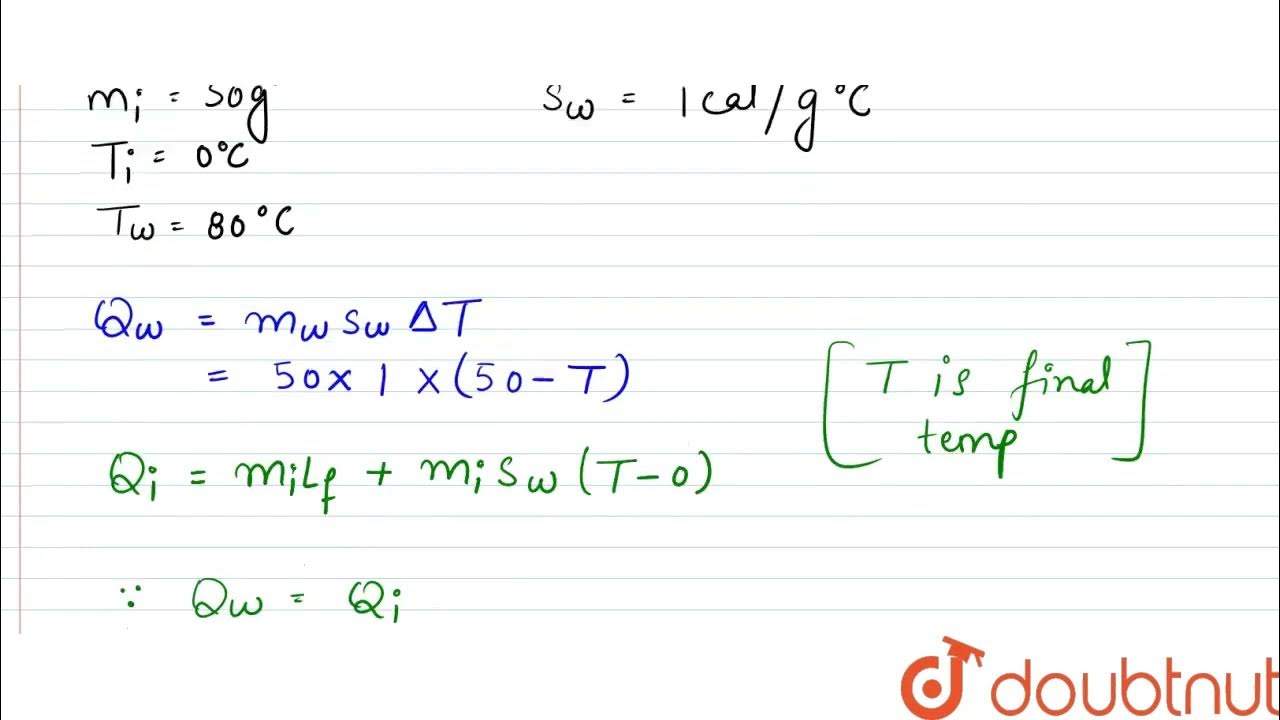 mi = 50g
Sw = 1 cal/g °C
Ti = 0°C
Tw = 80°C
Qw = mw sw ΔT
= 50 x 1 x (50 - T)
[T is final
temp]
Qi = miLf + mi sw (T - 0)
∵ Qw = Qi
doubtnut